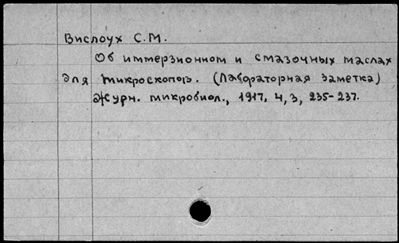 Вислоух С.М.
Об иммерзионном и смазочных маслах
для микроскопов. (Лабораторная заметка)
Журн. микробиол., 1917, 4, 3, 235-237.